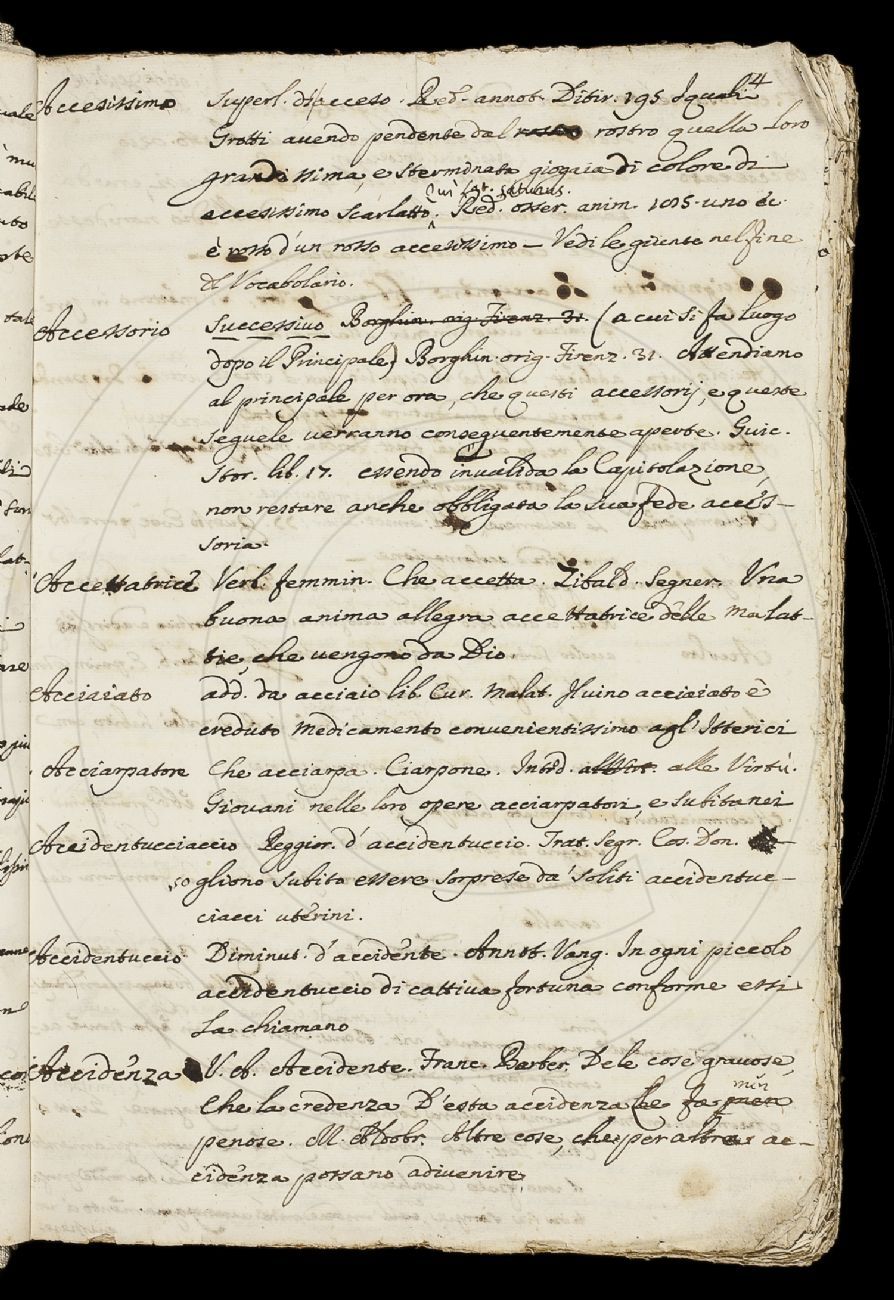 4
Accesissimo Superl. di acceso. Red. annot. Ditir. 195 I quali
Grotti avendo pendente dal rosso rostro quella loro
grandissima, e sterminata giogaia di colore di
qui lat. saturus.
accesissimo scarlatto. Red. osser. anim. 105. uno &c.
è rosso d'un rosso accesissimo — Vedi le giunte nel fine
del Vocabolario.
Accessorio Successivo Borghin. orig. Firenz. 31. (a cui si fa luogo
dopo il Principale) Borghin. orig. Firenz. 31. Attendiamo
al principale per ora, che questi accessorij, e queste
seguele verranno conseguentemente aperte. Guic.
Stor. lib. 17. essendo invalida la Capitolazione,
non restare anche obbligata la sua fede acces-
soria.
Accettatrice Verl. femmin. Che accetta. Zibald. Segner. Una
buona anima allegra accettatrice delle malat-
tie, che vengono da Dio.
Acciaiato add. da acciaio lib. Cur. Malat. Il vino acciaiato è
creduto medicamento convenientissimo agl' Itterici
Acciarpatore Che acciarpa. Ciarpone. Intrd. all Virt. alle Virtù.
Giovani nelle loro opere acciarpatori, e subitanei
Accidentucciaccio Peggior. d'accidentuccio. Trat. segr. Cos. Don.
so gliono subito essere sorprese da' soliti accidentuc-
ciacci uterini.
Accidentuccio Diminut. d'accidente. Annot. Vang. In ogni piccolo
accidentuccio di cattiva fortuna conforme essi
la chiamano
Accidenza V. A. Accidente. Franc. Barber. Dele cose gravose,
men
Che la credenza D'esta accidenza le fa
penose. M. Aldobr. Altre cose, che per altre ac-
cidenza possano adivenire